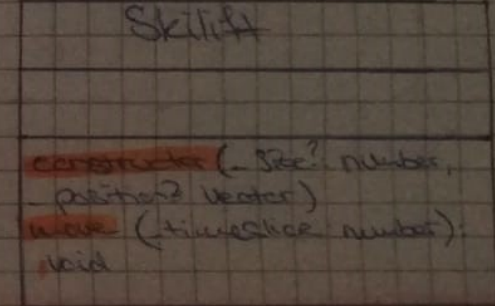 Skilift
constructor (_size? number,
_position? Vector)
move (_timeslice number):
void